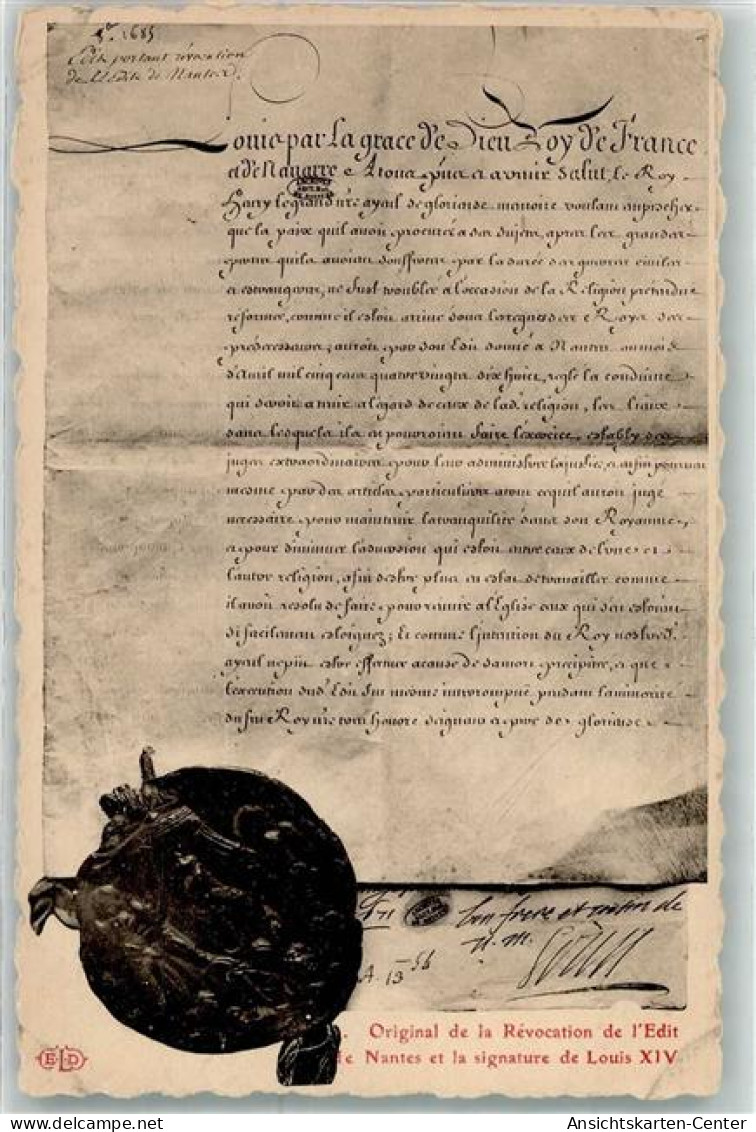 8bre 1685
Edit portant révocation
de l'Edit de Nantes.
Louis par la grace de Dieu Roy de France
et de Navarre A tous p̃ns et a venir Salut, Le Roy
Henry le grand n̄re ayeul de glorieuse memoire voulant empescher
que la paix quil avoit procurée a ses sujets, apres les grandes
pertes quils avoient souffertes par la durée des guerres civiles
et estrangeres, ne fust troublée à l'occasion de la Religion pretendue
reformée, comme il estoit arrivé sous les regnes des Roys ses
predecesseurs, auroit par son Edit donné à Nantes au mois
d'Avril mil cinq cens quatre vingts dix huict, reglé la conduitte
qui devoit a tenir a l'égard de ceux de lad. religion, les lieux
dans lesquels ils en pouroient faire l'exercice, estably des
juges extraordinaires pour leur administrer la justice, et enfin pourveu
mesme par des articles particuliers a tout ce quil auroit jugé
necessaire pour maintenir la tranquilité dans son Royaume,
et pour diminuer l'aversion qui estoit entre ceux de l'une et
l'autre religion, afin d'estre plus en estat de travailler comme
il avoit resolu de faire pour reunir a l'Eglise ceux qui s'en estoient
si facilement esloignez; Et comme l'intention du Roy nostred.
ayeul ne put estre effectuée a cause de sa mort precipitée, et que
l'execution dud. Edit fut mesme interrompue pendant la minorité
du feu Roy n̄re tres honoré seigneur et pere de glorieuse
bon frere et
A. 13 56
n. m.
Louis
Original de la Révocation de l'Edit
de Nantes et la signature de Louis XIV
ELD
Ansichtskarten-Center